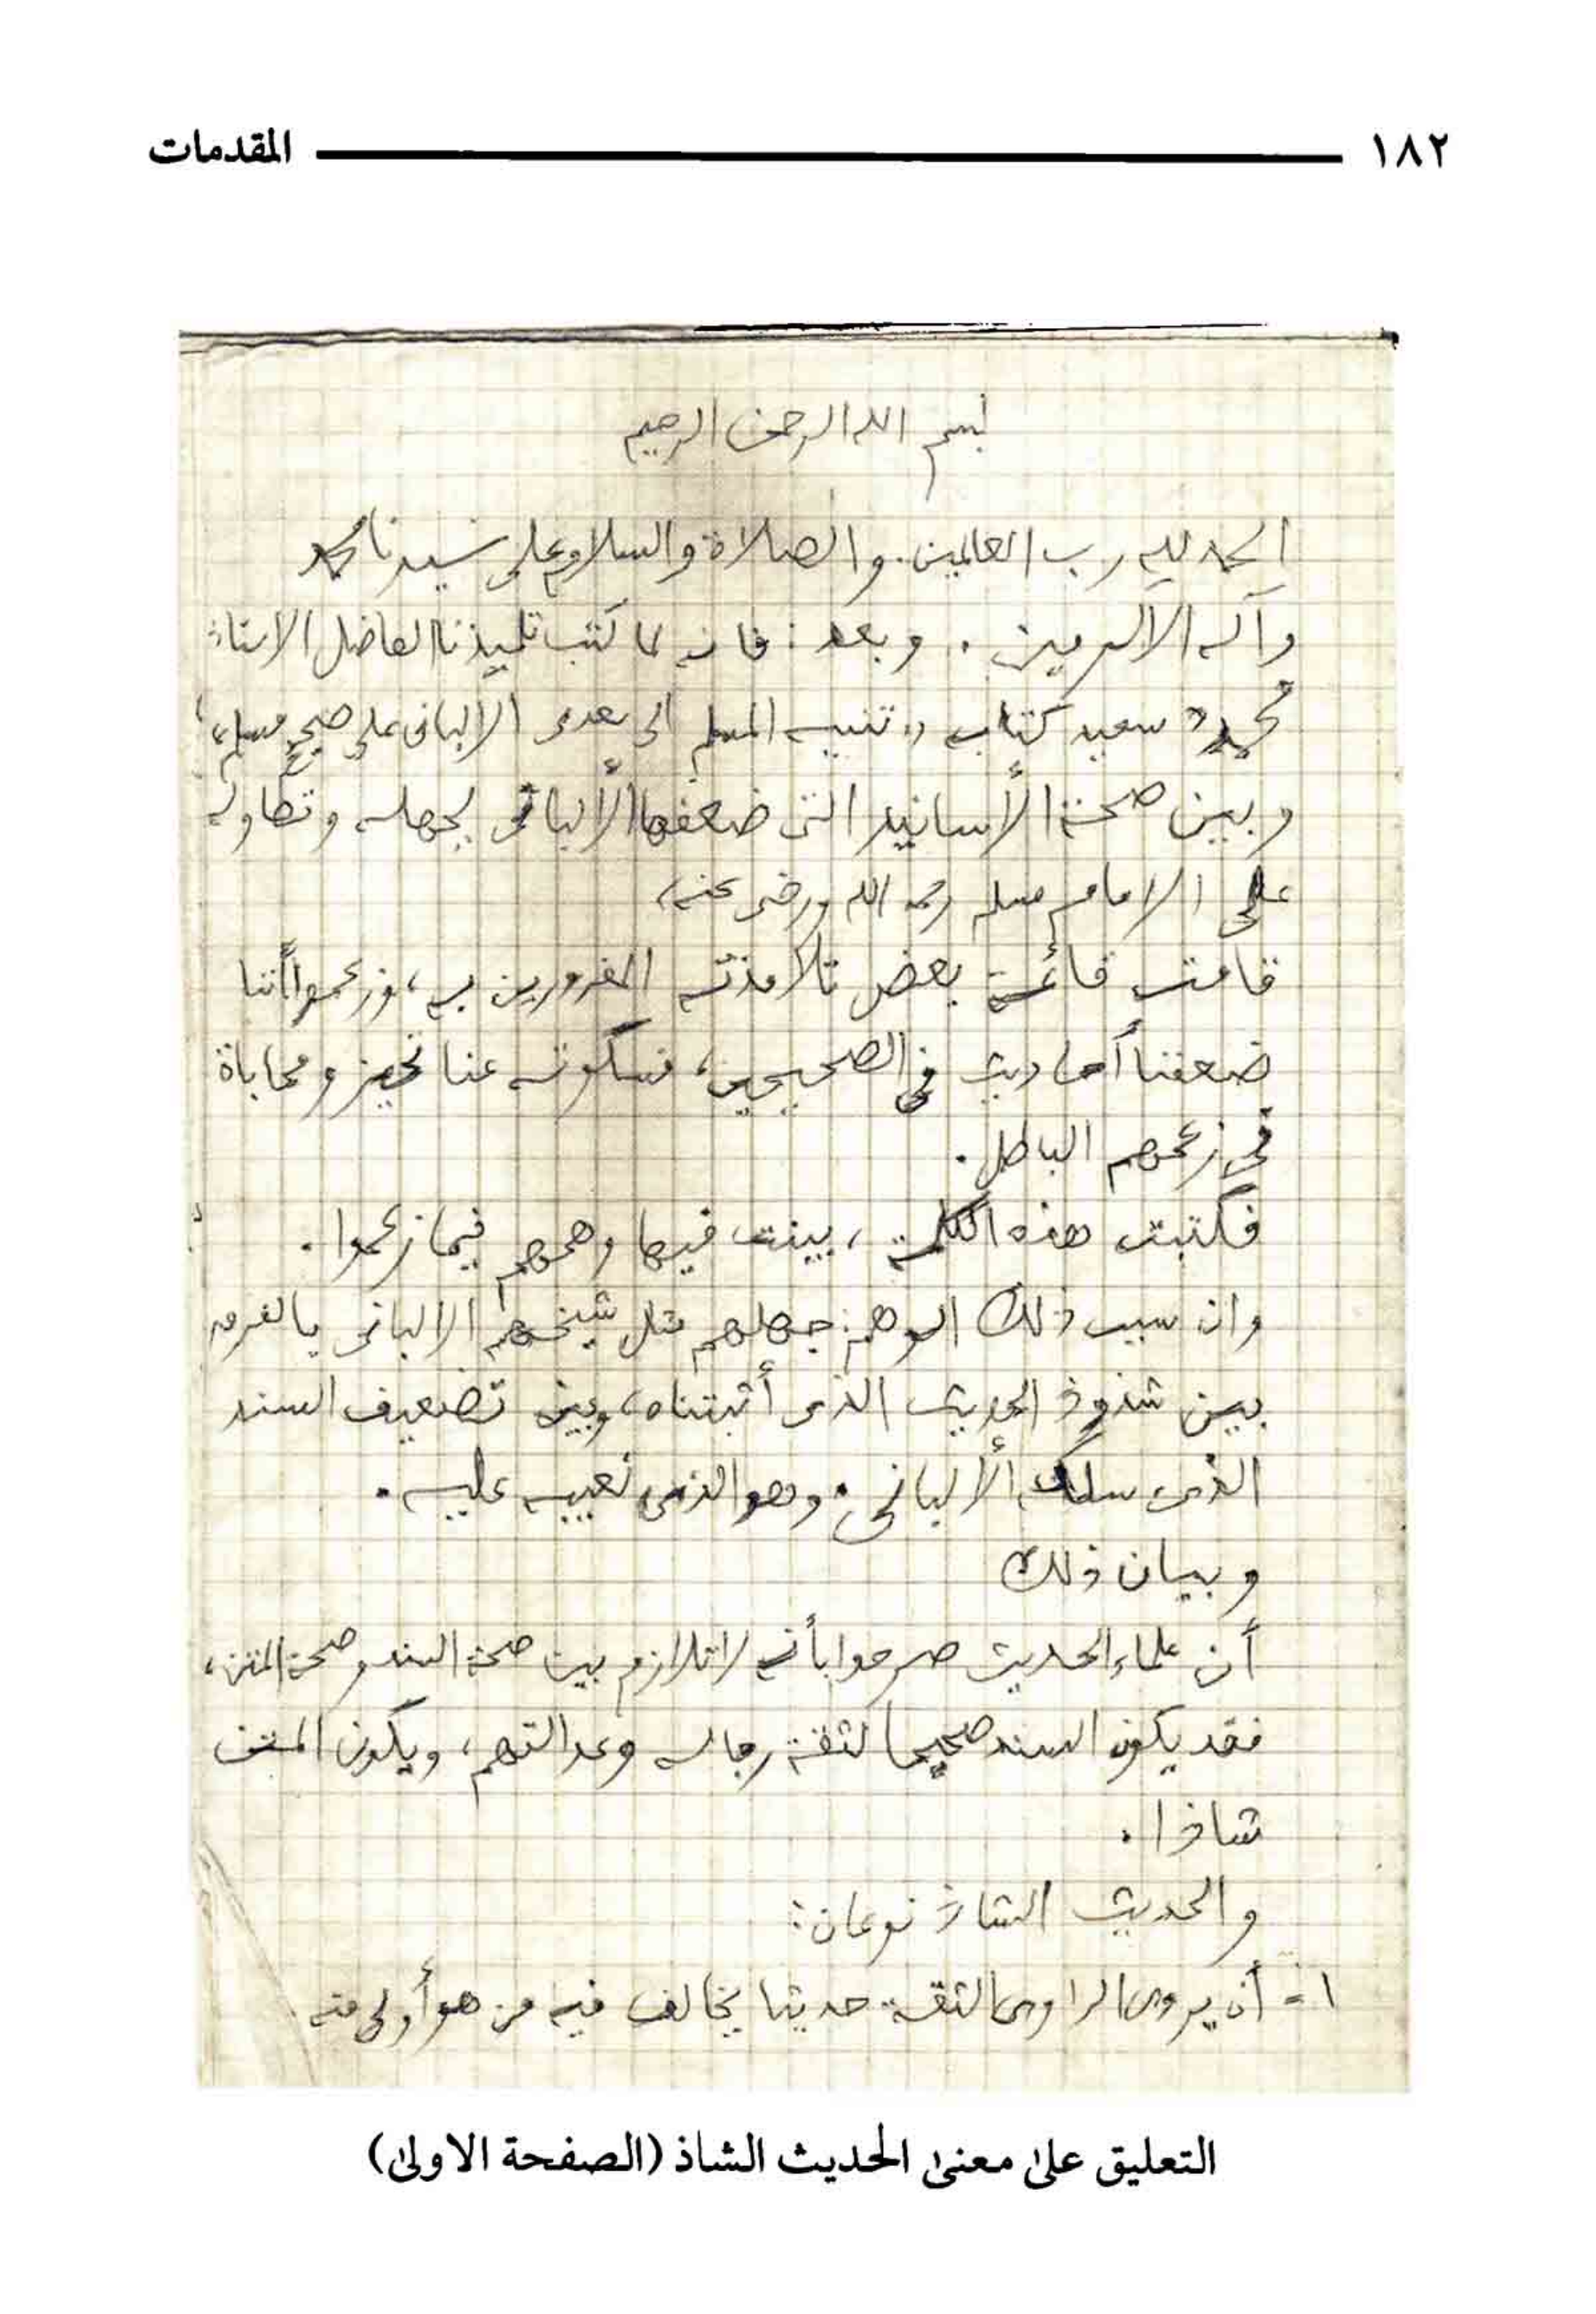 ١٨٢ المقدمات
بسم الله الرحمن الرحيم
الحمد لله رب العالمين. والصلاة والسلام على سيدنا محمد
وآله الأكرمين. وبعد: فانه لما كتب تلميذنا الفاضل الاستاذ
محمود سعيد كتاب «تنبيه المسلم الى تعدى الألبانى على صحيح مسلم»
وبين صحة الأسانيد التى ضعفها الألبانى لجهله وتطاوله
على الامام مسلم رحمه الله ورضى عنه،
قامت قائمة بعض تلامذته المغرورين به، وزعموا أننا
ضعفنا أحاديث فى الصحيحين، فسكوته عنا تحيز ومحاباة
فى زعمهم الباطل.
فكتبت هذه الكلمة، بينت فيها وهمهم فيما زعموا.
وان سبب ذلك الوهم: جهلهم مثل شيخهم الالبانى بالفرق
بين شذوذ الحديث الذى أثبتناه، وبين تضعيف السند
الذى سلكه الألبانى. وهو الذى نعيبه عليه.
وبيان ذلك
أن علماء الحديث صرحوا بأنه لا تلازم بين صحة السند وصحة المتن،
فقد يكون السند صحيحا لثقة رجاله وعدالتهم، ويكون المتن
شاذا.
والحديث الشاذ نوعان:
١- أن يروى الراوى الثقة حديثا يخالف فيه من هو أولى منه
التعليق على معنى الحديث الشاذ (الصفحة الاولى)